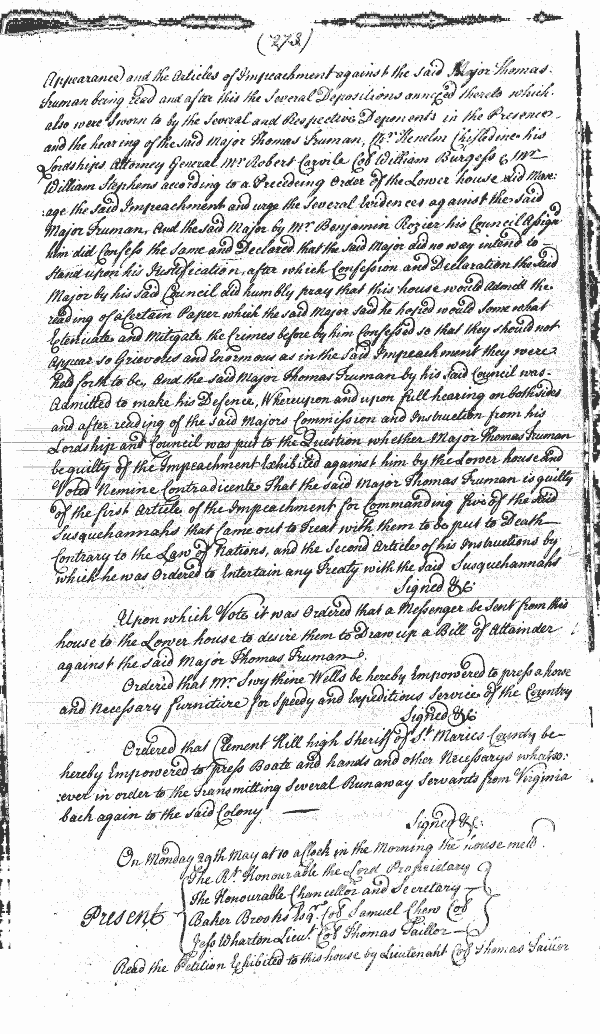 (273)
Appearance and the Articles of Impeachment against the said Major Thomas
Truman being read and after this the Several Depositions annexed thereto which
also were Sworn to by the Several and Respective Deponents in the Presence
and the hearing of the said Major Thomas Truman, Mr. Kenelm Chisseldine his
Lordships Attorney General Mr. Robert Carvile Col William Burgess & Mr.
William Stephens according to a Preceding Order of the Lower house did Man-
age the Said Impeachment and urge the Several Evidences against the said
Major Truman, And the said Major by Mr. Benjamin Rozier his Council Assign'd
him did Confess the Same and Declared that the said Major did no way intend to
Stand upon his Justification, after which Confession and Declaration the Said
Major by his Said Council did humbly pray that this house would Admitt the
reading of a Certain Paper which the said Major Said he hoped would Some what
Extenuate and Mitigate the Crimes before by him Confessed so that they should not
Appear so Grievous and Enormous as in the Said Impeachment they were
held forth to be, And the said Major Thomas Truman by his said Council was
Admitted to make his Defence, Whereupon and upon full hearing on both sides
and after reading of the said Majors Commission and Instruction from his
Lordship and Council was put to the Question whether Major Thomas Truman
be guilty of the Impeachment Exhibited against him by the Lower house and
Voted Nemine Contradicente That the said Major Thomas Truman is guilty
of the first Article of the Impeachment for Commanding five of the said
Susquehannahs that Came out to Treat with them to be put to Death
Contrary to the Law of Nations, and the Second Article of his Instructions by
which he was Ordered to Entertain any Treaty with the said Susquehannahs
Signed &c
Upon which Vote it was Ordered that a Messenger be Sent from this
house to the Lower house to desire them to Draw up a Bill of Attainder
against the said Major Thomas Truman.
Ordered that Mr. Swythine Wells be hereby Empowered to press a horse
and Necessary furniture for Speedy and Expeditious Service of the Country
Signed &c
Ordered that Clement Hill high Sheriff of St. Maries County be
hereby Empowered to press Boate and hands and other Necessarys whatso-
:ever in order to the transmitting Several Runaway Servants from Virginia
back again to the Said Colony
Signed &c.
On Monday 29th May at 10 a Clock in the Morning the house mett.
The Rt. Honourable the Lord Proprietary
The Honourable Chancellor and Secretary
Present Baker Brooks Esqr. Col Samuel Chew Col
Jess Wharton Lieut. Col Thomas Taillor
Read the Petition Exhibited to this house by Lieutenant Col Thomas Taillor